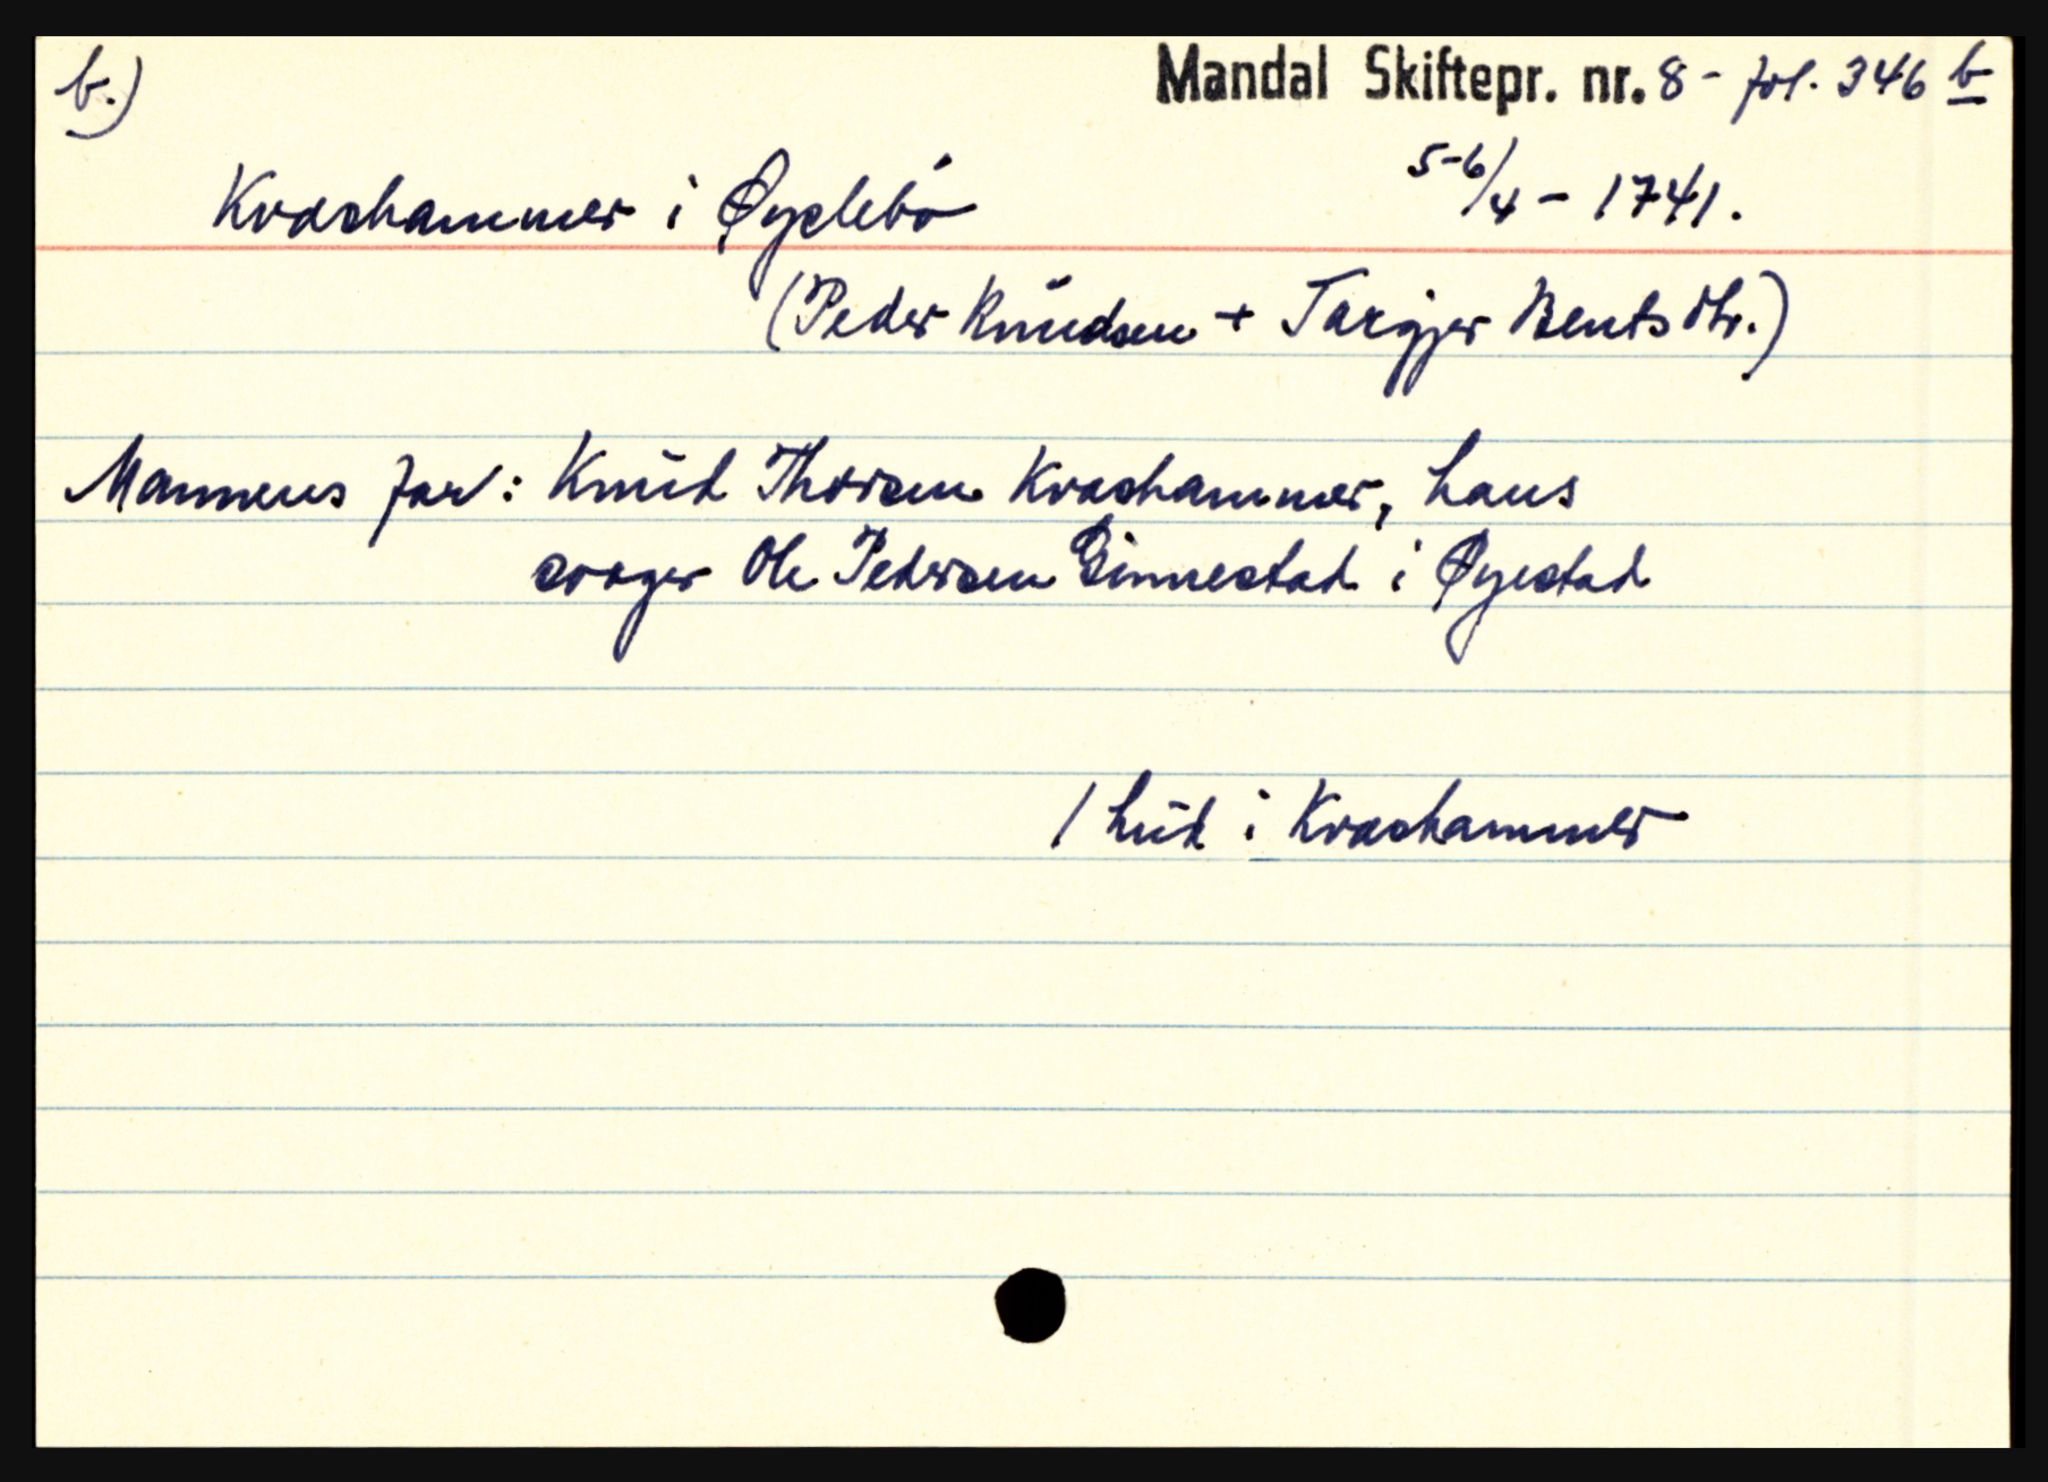 b.)
Mandal Skiftepr. nr. 8 - fol. 346 b
5-6/4 - 1741.
Kvashammer i Øyslebó
(Peder Knudsen + Targjer Bentsdtr.)
Mannens far: Knud Thorsen Kvashammer, hans
svoger Ole Pedersen Ginnestad i Øyestad
1 hud i Kvashammer